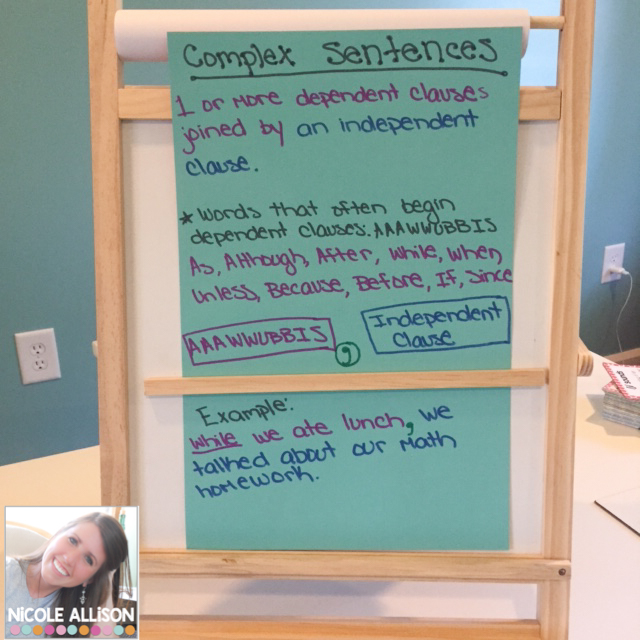 Complex Sentences
1 or more dependent clauses
joined by an independent
clause.
* words that often begin
dependent clauses: AAAWWUBBIS
As, Although, After, While, When,
Unless, Because, Before, If, Since
AAAWWUBBIS , Independent
Clause
Example:
While we ate lunch, we
talked about our Math
homework.
NiCOLE ALLiSON